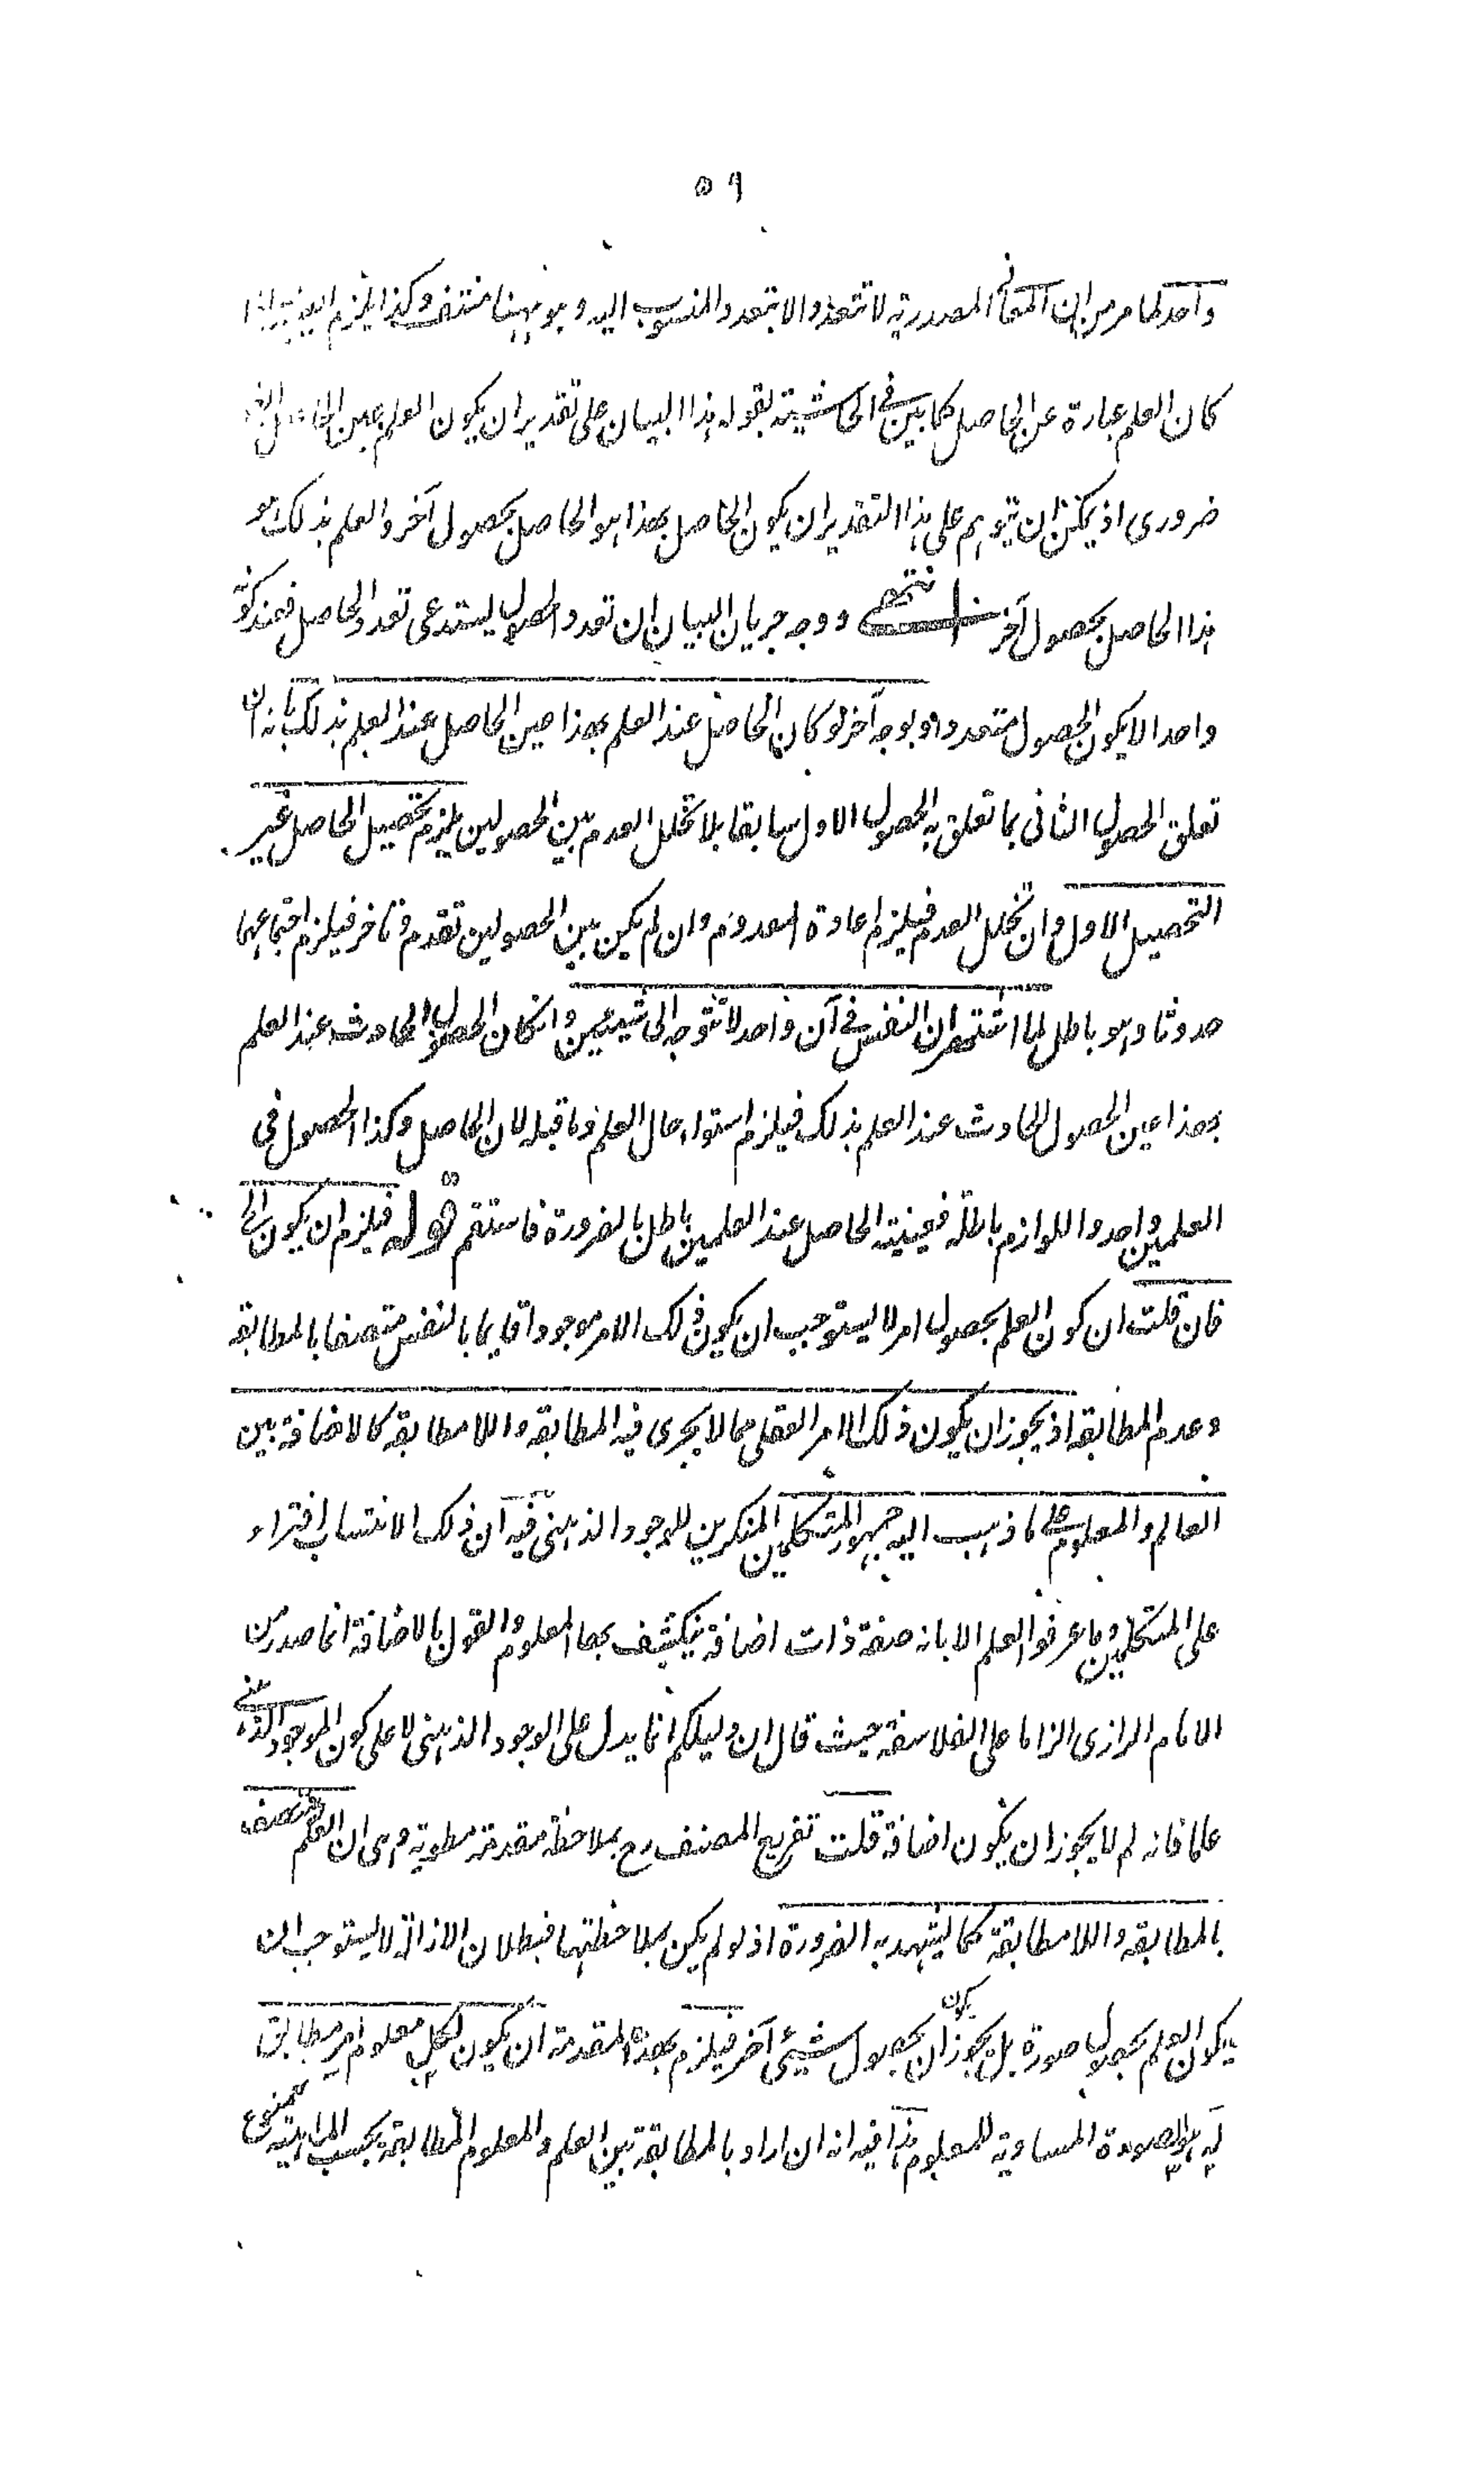 ٥٦
واحد لما مر من ان المعانى المصدرية لا تتعدد الا بتعدد المنسوب اليه وهو ههنا منتف وكذا يلزم
كان العلم عبارة عن الحاصل كما بين فى الحاشية بقوله هذا البيان على تقدير ان يكون العلم عين
ضرورى اذ يمكن ان يتوهم على هذا التقدير ان يكون الحاصل بهذا هو الحاصل بحصول آخر والعلم بذلك هو
هذا الحاصل بحصول آخر انتهى ووجه جريان البيان ان تعدد الحصول يستدعى تعدد الحاصل فعند كونه
واحدا لا يكون الحصول متعددا وبوجه آخر لو كان الحاصل عند العلم بهذا عين الحاصل عند العلم بذلك بانه ان
تعلق الحصول الثانى بما تعلق به الحصول الاول سابقا بلا تخلل العدم بين الحصولين يلزم تحصيل الحاصل غير
التحصيل الاول وان تخلل العدم فيلزم اعادة المعدوم وان لم يكن بين الحصولين تقدم وتاخر فيلزم اجتماعهما
حدوثا وهو باطل لما اشتهر ان النفس فى آن واحد لا تتوجه الى شيئين وان كان الحصول الحادث عند العلم
بهذا عين الحصول الحادث عند العلم بذلك فيلزم استواء حال العلم وما قبله لان الحاصل وكذا الحصول فى
العلمين واحد واللوازم باطلة فعينية الحاصل عند العلمين باطل بالضرورة فاستقم قوله فيلزم ان يكون الخ
فان قلت ان كون العلم بحصول امر لا يستوجب ان يكون ذلك الامر موجودا قايما بالنفس متصفا بالمطابقة
وعدم المطابقة اذ يجوز ان يكون ذلك الامر العقلى مما لا يجرى فيه المطابقة واللامطابقة كالاضافة بين
العالم والمعلوم على ما ذهب اليه جمهور المتكلمين المنكرين للوجود الذهنى فيه ان ذلك الانتساب افتراء
على المتكلمين وما عرفوا العلم الا بانه صفة ذات اضافة ينكشف بها المعلوم والقول بالاضافة انما صدر من
الامام الرازى الزاما على الفلاسفة حيث قال ان دليلكم انما يدل على الوجود الذهنى لا على كون الموجود الذهنى
علما فانه لم لا يجوز ان يكون اضافة قلت تفريع المصنف رح بملاحظة مقدمة مطوية وهى ان العلم متصف
بالمطابقة واللامطابقة كما يشهد به الضرورة اذ لو لم يكن بملاحظتها فبطلان الازالة لا يستوجب ان
يكون العلم بحصول صورة بل يجوز ان يكون بحصول شيئ آخر فيلزم بهذه المقدمة ان يكون لكل معلوم امر مطابق
له هو الصورة المساوية للمعلوم هذا فيه انه ان اراد بالمطابقة بين العلم والمعلوم المطابقة بحسب الماهية فممنوع